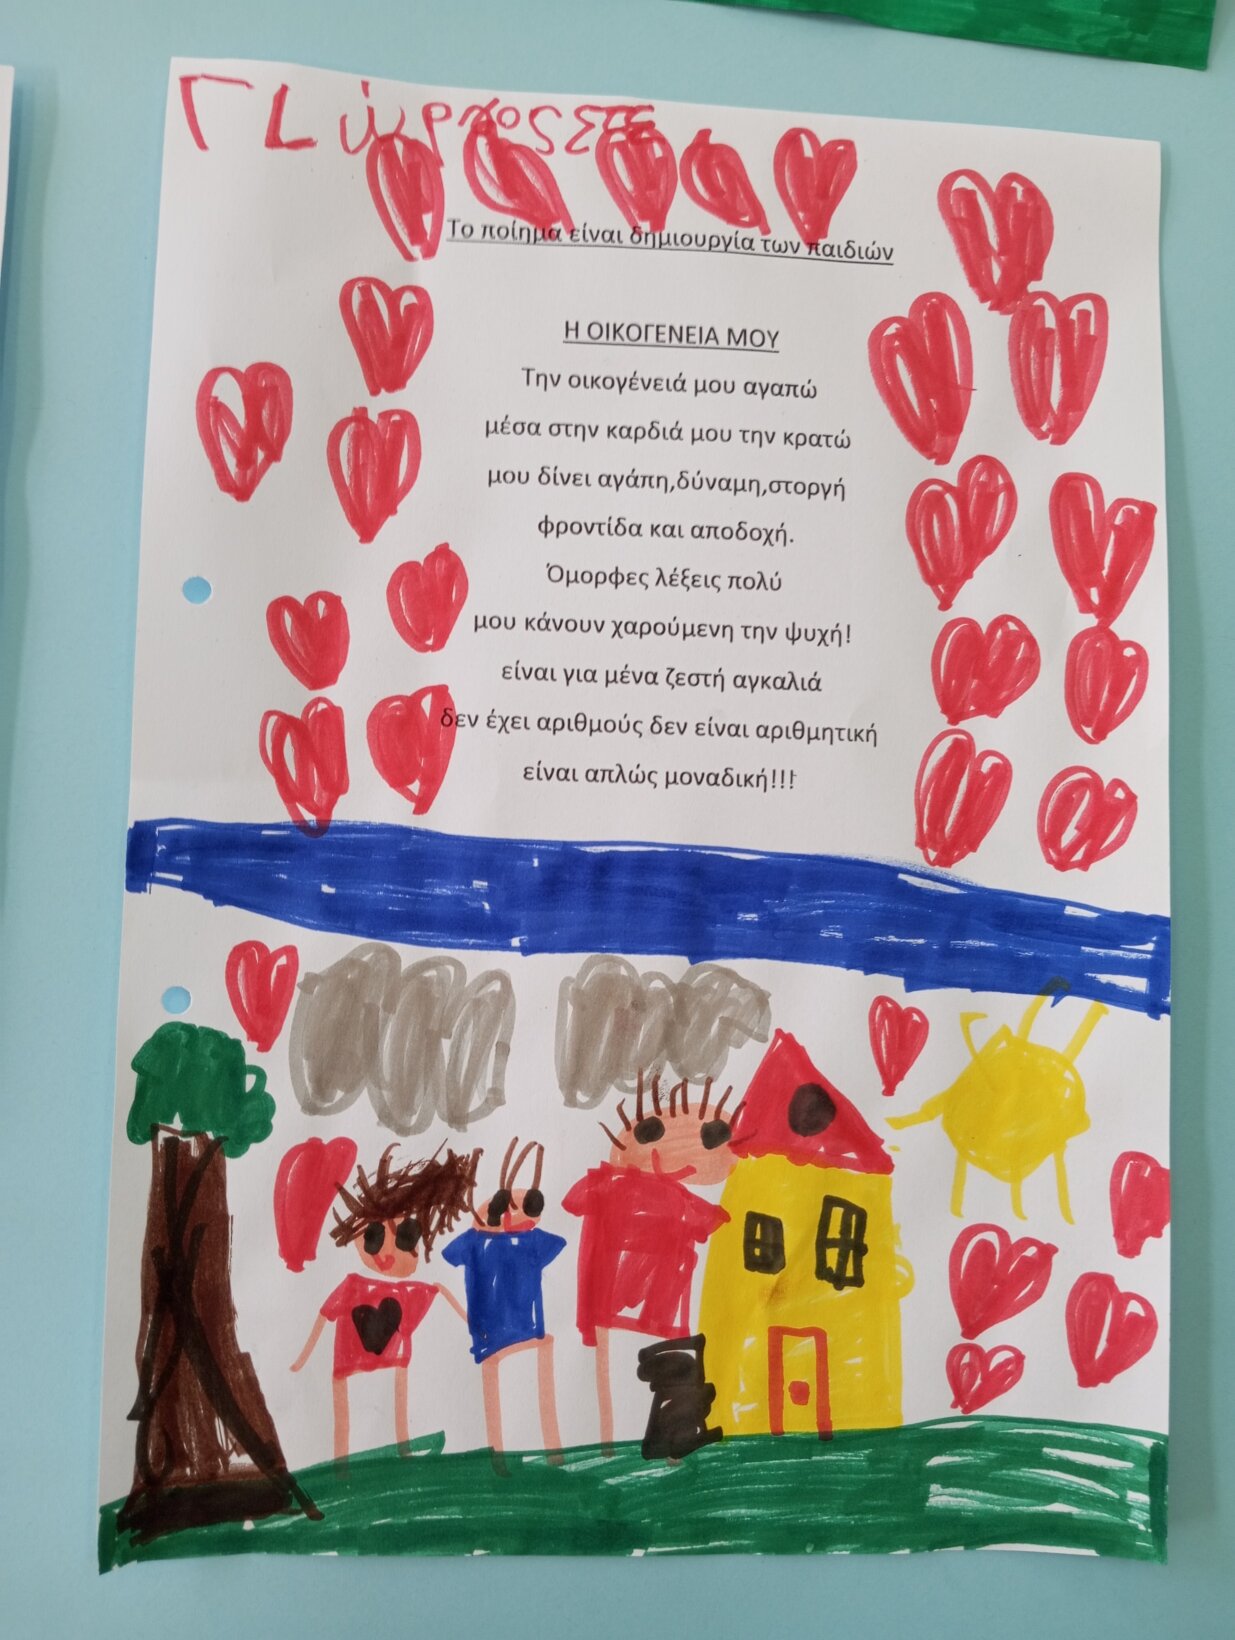 Γιώργος ΣΤΕ
Το ποίημα είναι δημιουργία των παιδιών
Η ΟΙΚΟΓΕΝΕΙΑ ΜΟΥ
Την οικογένειά μου αγαπώ
μέσα στην καρδιά μου την κρατώ
μου δίνει αγάπη,δύναμη,στοργή
φροντίδα και αποδοχή.
Όμορφες λέξεις πολύ
μου κάνουν χαρούμενη την ψυχή!
είναι για μένα ζεστή αγκαλιά
δεν έχει αριθμούς δεν είναι αριθμητική
είναι απλώς μοναδική!!!